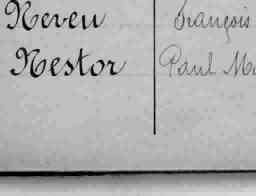 Neveu François
Nestor Paul M